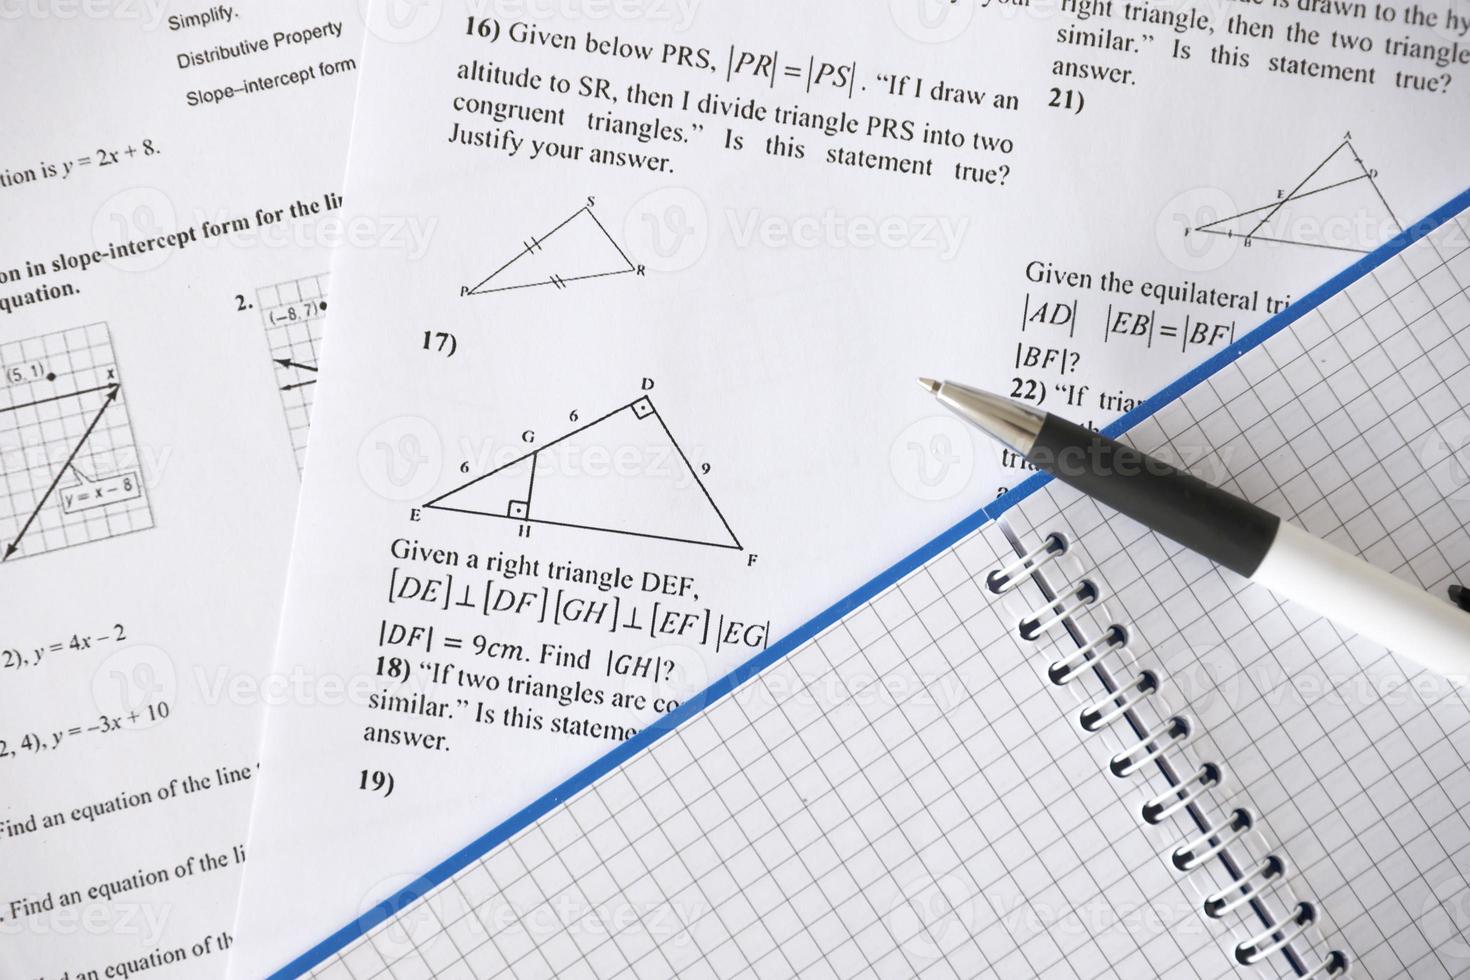 Simplify.
Distributive Property
Slope–intercept form
tion is y = 2x + 8.
on in slope-intercept form for the
quation.
(5, 1)
x
y = x – 8
2.
(–8, 7)
2), y = 4x – 2
2, 4), y = –3x + 10
Find an equation of the line
. Find an equation of the li
an equation of th
16) Given below PRS, |PR| = |PS|. “If I draw an
altitude to SR, then I divide triangle PRS into two
congruent triangles.” Is this statement true?
Justify your answer.
S
P
R
17)
D
6
G
6
9
E
H
F
Given a right triangle DEF,
[DE]⊥[DF][GH]⊥[EF]|EG|
|DF| = 9cm. Find |GH|?
18) “If two triangles are co
similar.” Is this stateme
answer.
19)
is drawn to the hy
right triangle, then the two triangle
similar.” Is this statement true?
answer.
21)
A
D
E
F
B
Given the equilateral tri
|AD| |EB| = |BF|
|BF|?
22) “If trian
Vecteezy